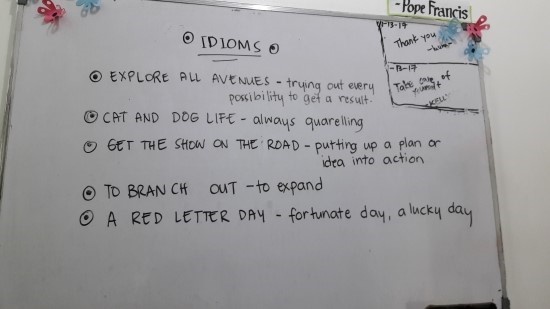 -Pope Francis
IDIOMS
EXPLORE ALL AVENUES - trying out every
possibility to get a result.
CAT AND DOG LIFE - always quarelling
GET THE SHOW ON THE ROAD - putting up a plan or
idea into action
TO BRANCH OUT - to expand
A RED LETTER DAY - fortunate day, a lucky day
-13-17
Thank you
-12-17
Take care of
yourself